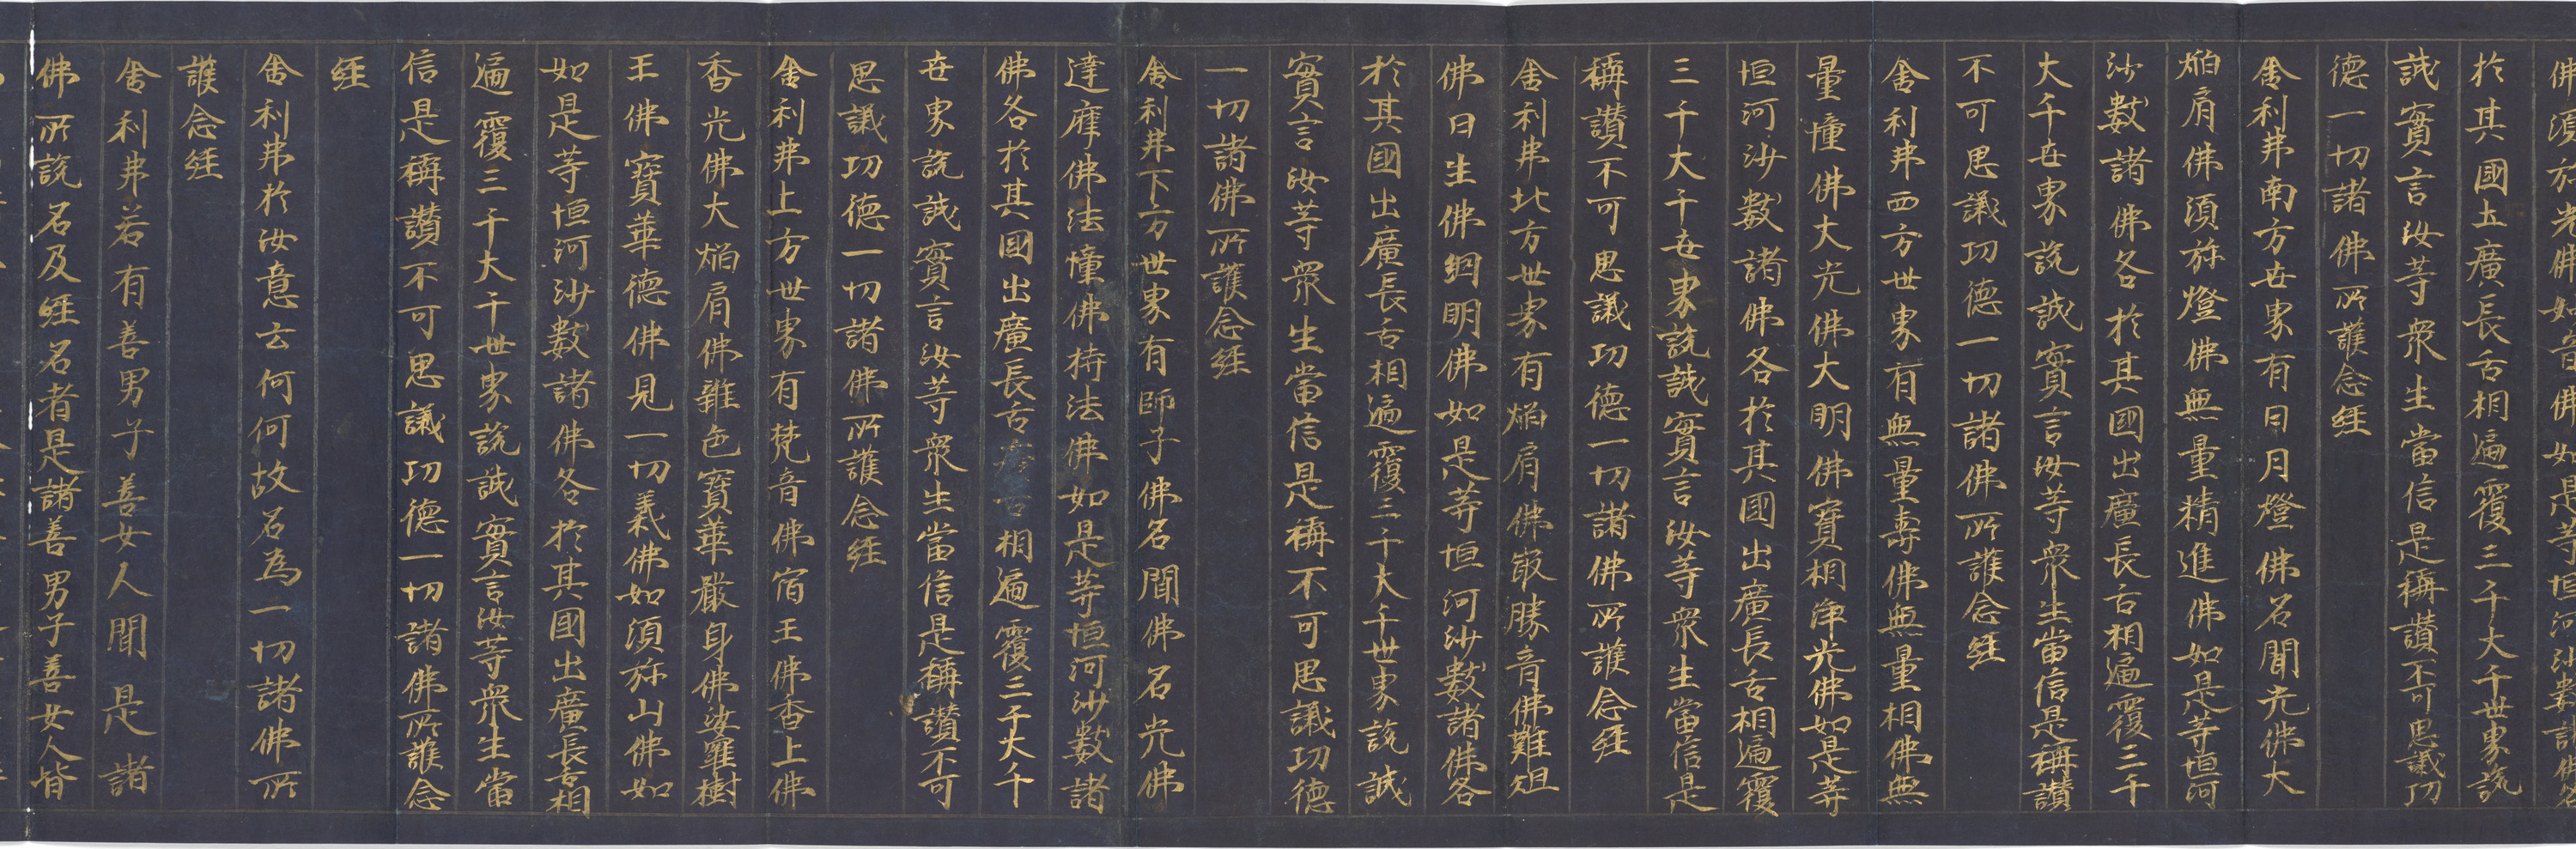 佛須弥光佛妙音佛如是等恒河沙數諸佛各
於其國出廣長舌相遍覆三千大千世界説
誠實言汝等衆生當信是稱讚不可思議功
德一切諸佛所護念經
舍利弗南方世界有日月燈佛名聞光佛大
焔肩佛須弥燈佛無量精進佛如是等恒河
沙數諸佛各於其國出廣長舌相遍覆三千
大千世界説誠實言汝等衆生當信是稱讚
不可思議功德一切諸佛所護念經
舍利弗西方世界有無量壽佛無量相佛無
量幢佛大光佛大明佛寶相佛淨光佛如是等
恒河沙數諸佛各於其國出廣長舌相遍覆
三千大千世界説誠實言汝等衆生當信是
稱讚不可思議功德一切諸佛所護念經
舍利弗北方世界有焔肩佛最勝音佛難沮
佛日生佛網明佛如是等恒河沙數諸佛各
於其國出廣長舌相遍覆三千大千世界説誠
實言汝等衆生當信是稱不可思議功德
一切諸佛所護念經
舍利弗下方世界有師子佛名聞佛名光佛
達摩佛法幢佛持法佛如是等恒河沙數諸
佛各於其國出廣長舌相遍覆三千大千
世界説誠實言汝等衆生當信是稱讚不可
思議功德一切諸佛所護念經
舍利弗上方世界有梵音佛宿王佛香上佛
香光佛大焔肩佛雜色寶華嚴身佛娑羅樹
王佛寶華德佛見一切義佛如須弥山佛如
如是等恒河沙數諸佛各於其國出廣長舌相
遍覆三千大千世界説誠實言汝等衆生當
信是稱讚不可思議功德一切諸佛所護念
經
舍利弗於汝意云何何故名為一切諸佛所
護念經
舍利弗若有善男子善女人聞是諸
佛所説名及經名者是諸善男子善女人皆